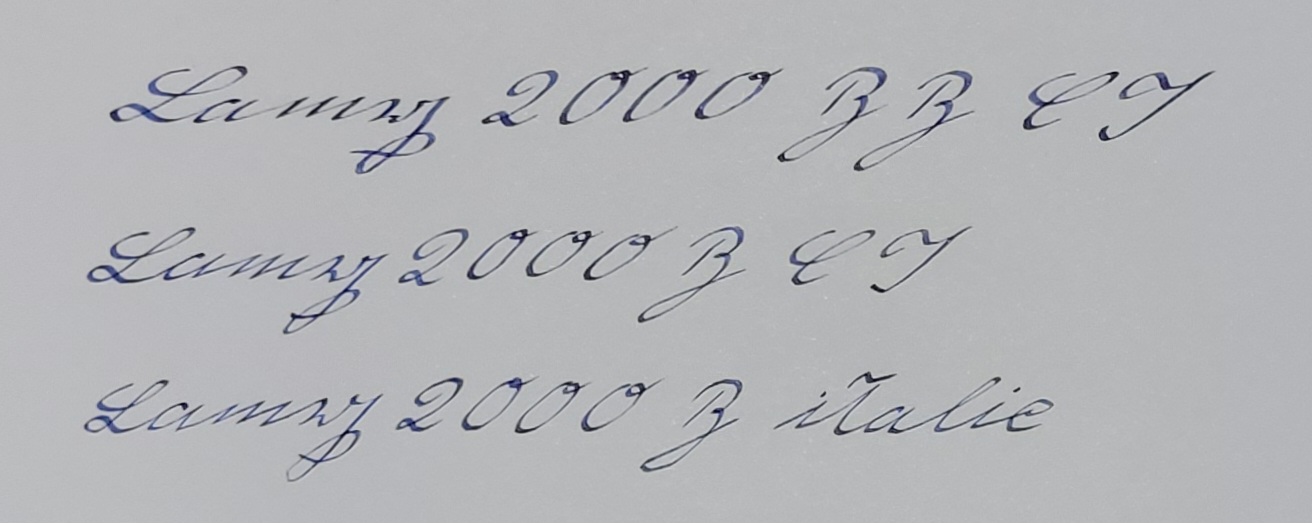 Lamy 2000 BB CI
Lamy 2000 B CI
Lamy 2000 B italic